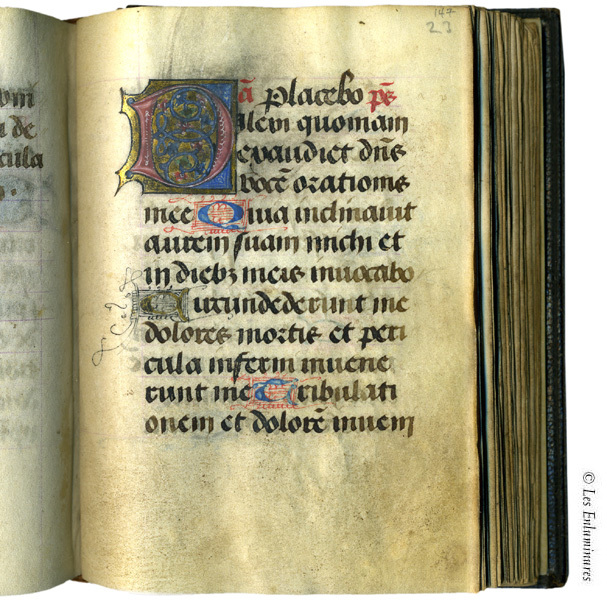 147
23
ā Placebo ps̄
Dilexi quoniam
exaudiet dn̄s
vocē orationis
mee Quia inclinauit
aurem suam michi et
in dieb⁊ meis inuocabo
Circundederunt me
dolores mortis et peri
cula inferni inuene
runt me Tribulati
onem et dolorē inueni
de
cula
© Les Enluminures